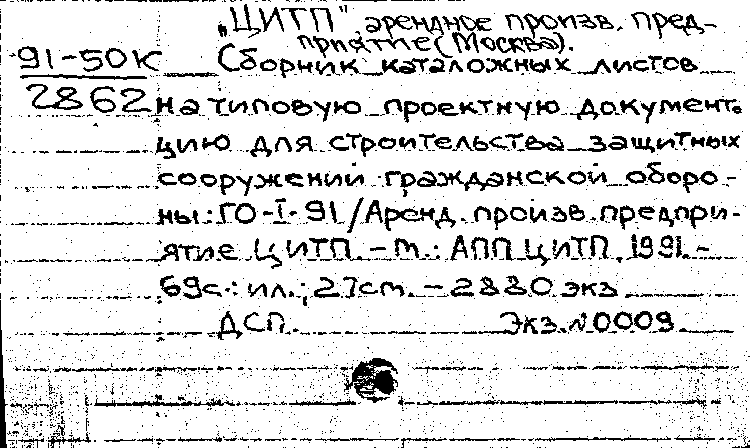 „ЦИТП", арендное произв. пред-
приятие (Москва).
91-50к Сборник каталожных листов
2862 на типовую проектную документа-
цию для строительства защитных
сооружений гражданской оборо-
ны: ГО-I-91 / Аренд. произв. предпри-
ятие ЦИТП. - М.: АПП ЦИТП, 1991. -
69с.: ил.; 27см. - 2880 экз
ДСП. Экз. №0009.